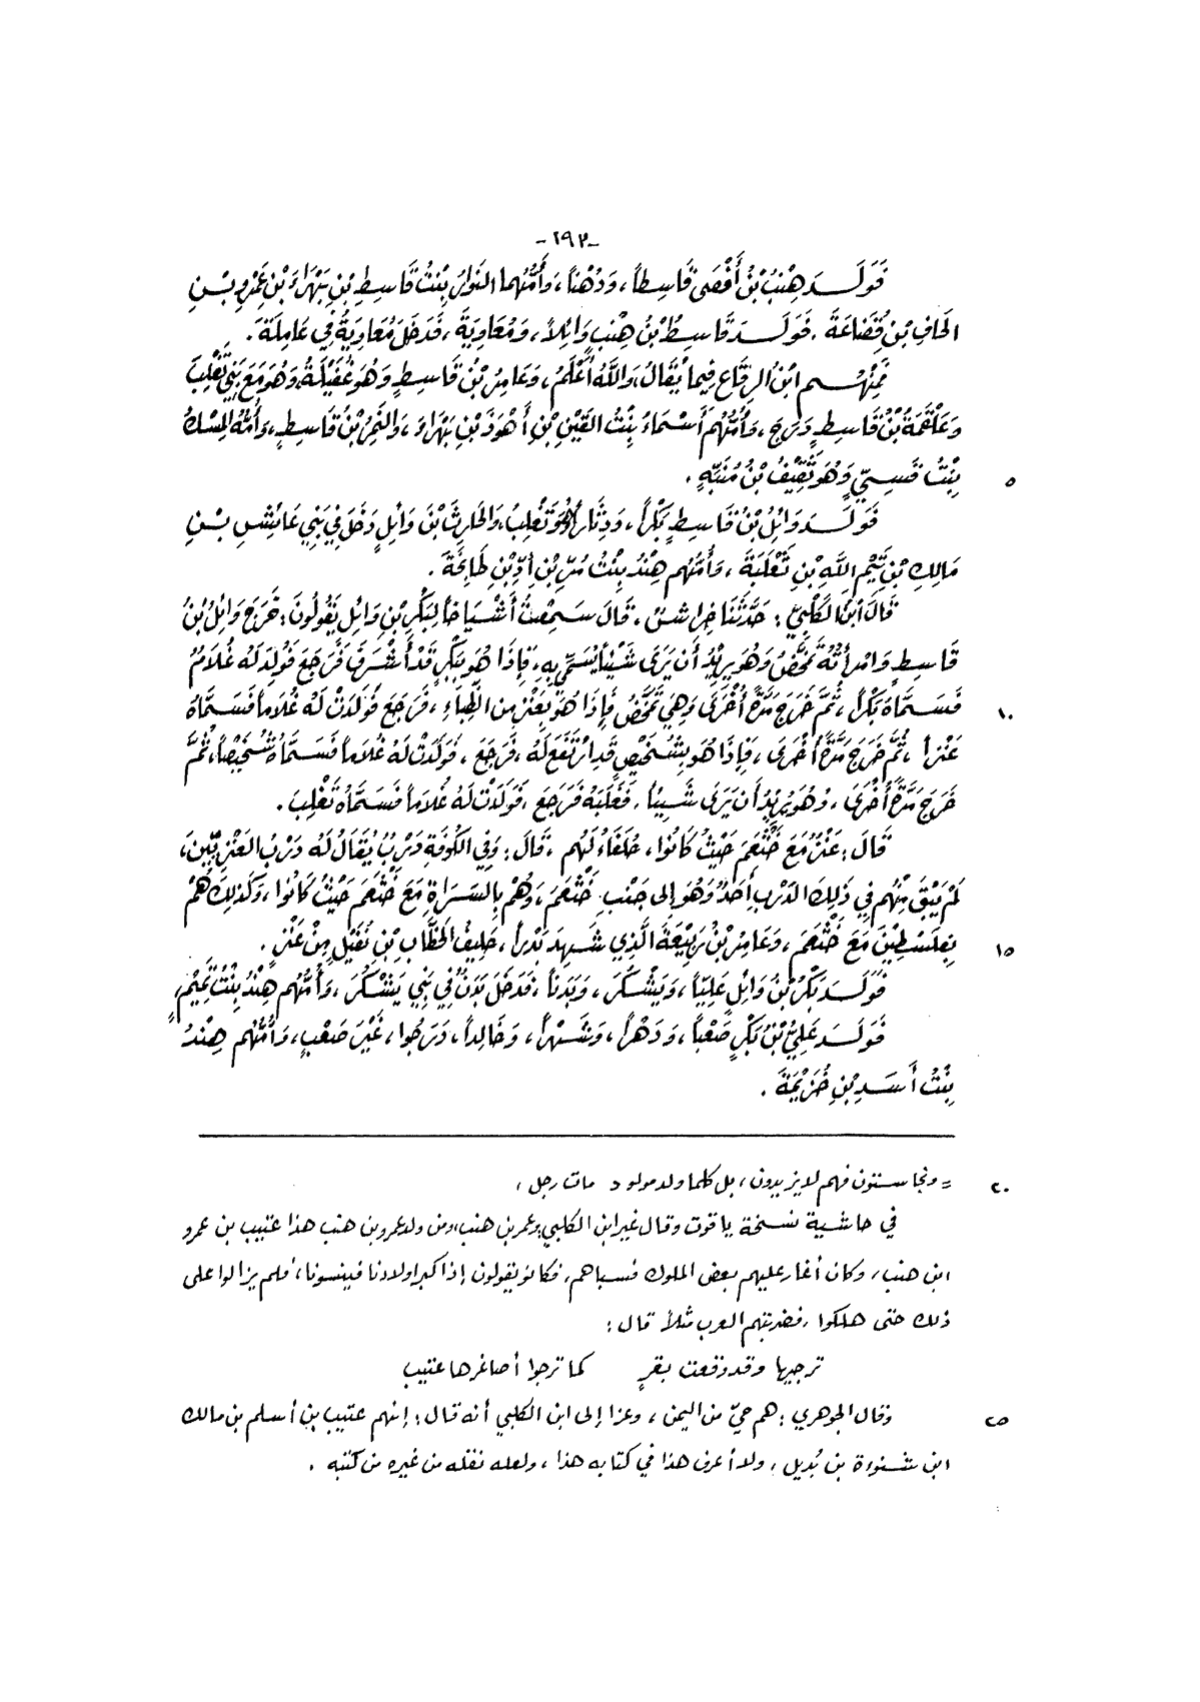 -١٩٢-
فَوَلَدَ هِنْبُ بْنُ أَفْصَى قَاسِطاً، وَدُهْناً، وَأُمُّهُما النَوَارُ بِنْتُ قَاسِطِ بْنِ بَهْرَاءَ بْنِ عَمْرِو بْنِ
الحَافِ بْنِ قُضَاعَةَ. فَوَلَدَ قَاسِطُ بْنُ هِنْبٍ وَائِلاً، وَمُعَاوِيَةَ، فَدَخَلَ مُعَاوِيَةُ فِي عَامِلَةَ.
فَمِنْهُم ابْنُ الرِقَاعِ فِيما يُقَالُ، وَاللَّهُ أَعْلَمُ، وَعَامِرُ بْنُ قَاسِطٍ وَهُوَ غُفَيْلَةُ، وَهُوَ مَعَ بَنِي تَغْلِبَ
وَعَلْقَمَةُ بْنُ قَاسِطٍ دَرَجَ، وَأُمُّهُم أَسْمَاءُ بِنْتُ القَيْنِ بْنِ أَهْوَذَ بْنِ بَهْرَاءَ، وَالنَمِرُ بْنُ قَاسِطٍ، وَأُمُّهُ المِسْكُ
٥ بِنْتُ قَسِيٍّ وَهُوَ ثَقِيفُ بْنُ مُنَبِّهٍ.
فَوَلَدَ وَائِلُ بْنُ قَاسِطٍ بَكْراً، وَدِثَاراً وَهُوَ تَغْلِبُ، وَالحَارِثَ بْنَ وَائِلٍ دَخَلَ فِي بَنِي عَائِشِ بْنِ
مَالِكِ بْنِ تَيْمِ اللَّهِ بْنِ ثَعْلَبَةَ، وَأُمُّهُم هِنْدُ بِنْتُ مُرِّ بْنِ أُدِّ بْنِ طَابِخَةَ.
قَالَ ابْنُ الكَلْبِيِّ: حَدَّثَنَا خِرَاشٌ، قَالَ سَمِعْتُ أَشْيَاخاً لِبَكْرِ بْنِ وَائِلٍ يَقُولُونَ: خَرَجَ وَائِلُ بْنُ
قَاسِطٍ وَامْرَأَتُهُ تَمَخَّضُ وَهُوَ يُرِيْدُ أَنْ يَرَى شَيْئاً يُسَمِّي بِهِ، فَإِذَا هُوَ بِبَكْرٍ قَدْ أَشْرَفَ فَرَجَعَ فَوُلِدَ لَهُ غُلَامٌ
١٠ فَسَمَّاهُ بَكْراً، ثُمَّ خَرَجَ مَرَّةً أُخْرَى وَهِيَ تَمَخَّضُ فَإِذَا هُوَ بِعَنْزٍ مِنَ الظِّبَاءِ، فَرَجَعَ فَوَلَدَتْ لَهُ غُلَاماً فَسَمَّاهُ
عَنْزاً، ثُمَّ خَرَجَ مَرَّةً أُخْرَى، فَإِذَا هُوَ بِشُخَيْصٍ قَدِ ارْتَفَعَ لَهُ، فَرَجَعَ، فَوَلَدَتْ لَهُ غُلَاماً فَسَمَّاهُ شُخَيْصاً، ثُمَّ
خَرَجَ مَرَّةً أُخْرَى، وَهُوَ يُرِيْدُ أَنْ يَرَى شَيْئاً، فَغَلَبَهُ فَرَجَعَ، فَوَلَدَتْ لَهُ غُلَاماً فَسَمَّاهُ تَغْلِبَ.
قَالَ: عَنْزٌ مَعَ خَثْعَمَ حَيْثُ كَانُوا، حُلَفَاءُ لَهُم، قَالَ: وَفِي الكُوفَةِ دَرْبٌ يُقَالُ لَهُ دَرْبُ العَنْزِيِّينَ،
لَمْ يَبْقَ مِنْهُم فِي ذَلِكَ الدَرْبِ أَحَدٌ وَهُوَ إلى جَنْبِ خَثْعَمَ، وَهُمْ بِالسَرَاةِ مَعَ خَثْعَمَ حَيْثُ كَانُوا، وَكَذلِكَ هُمْ
١٥ بِفِلَسْطِيْنَ مَعَ خَثْعَمَ، وَعَامِرُ بْنُ رَبِيْعَةَ الَّذِي شَهِدَ بَدْراً، حَلِيفُ الخَطَّابِ بْنِ نُفَيْلٍ مِنْ عَنْزٍ.
فَوَلَدَ بَكْرُ بْنُ وَائِلٍ عَلِيّاً، وَيَشْكُرَ، وَبَدَناً، فَدَخَلَ بَدَنٌ فِي بَنِي يَشْكُرَ، وَأُمُّهُم هِنْدُ بِنْتُ تَمِيْمٍ
فَوَلَدَ عَلِيُّ بْنُ بَكْرٍ صَعْباً، وَدَهْراً، وَشَهْراً، وَخَالِداً، دَرَجُوا، غَيْرَ صَعْبٍ، وَأُمُّهُم هِنْدُ
بِنْتُ أَسَدِ بْنِ خُزَيْمَةَ.
٢٠ = ونجا ستون فهم لا يزيدون، بل كلما ولد مولود مات رجل،
في حاشية نسخة ياقوت وقال غير ابن الكلبي: وعمر بن هنب، ومن ولد عمرو بن هنب هذا عتيب بن عمرو
ابن هنب، وكان أغار عليهم بعض الملوك فسباهم، فكانو يقولون إذا كبر اولادنا فينسونا، فلم يزالوا على
ذلك حتى هلكوا، فضربتهم العرب مثلاً قال:
ترجيها وقد وقعت بقرٍ كما ترجوا أصاغرها عتيب
٢٥ وقال الجوهري: هم حيّ من اليمن، وعزا إلى ابن الكلبي أنه قال: إنهم عتيب بن أسلم بن مالك
ابن شنوءة بن بُديل، ولا أعرف هذا في كتابه هذا، ولعله نقله من غيره من كتبه.